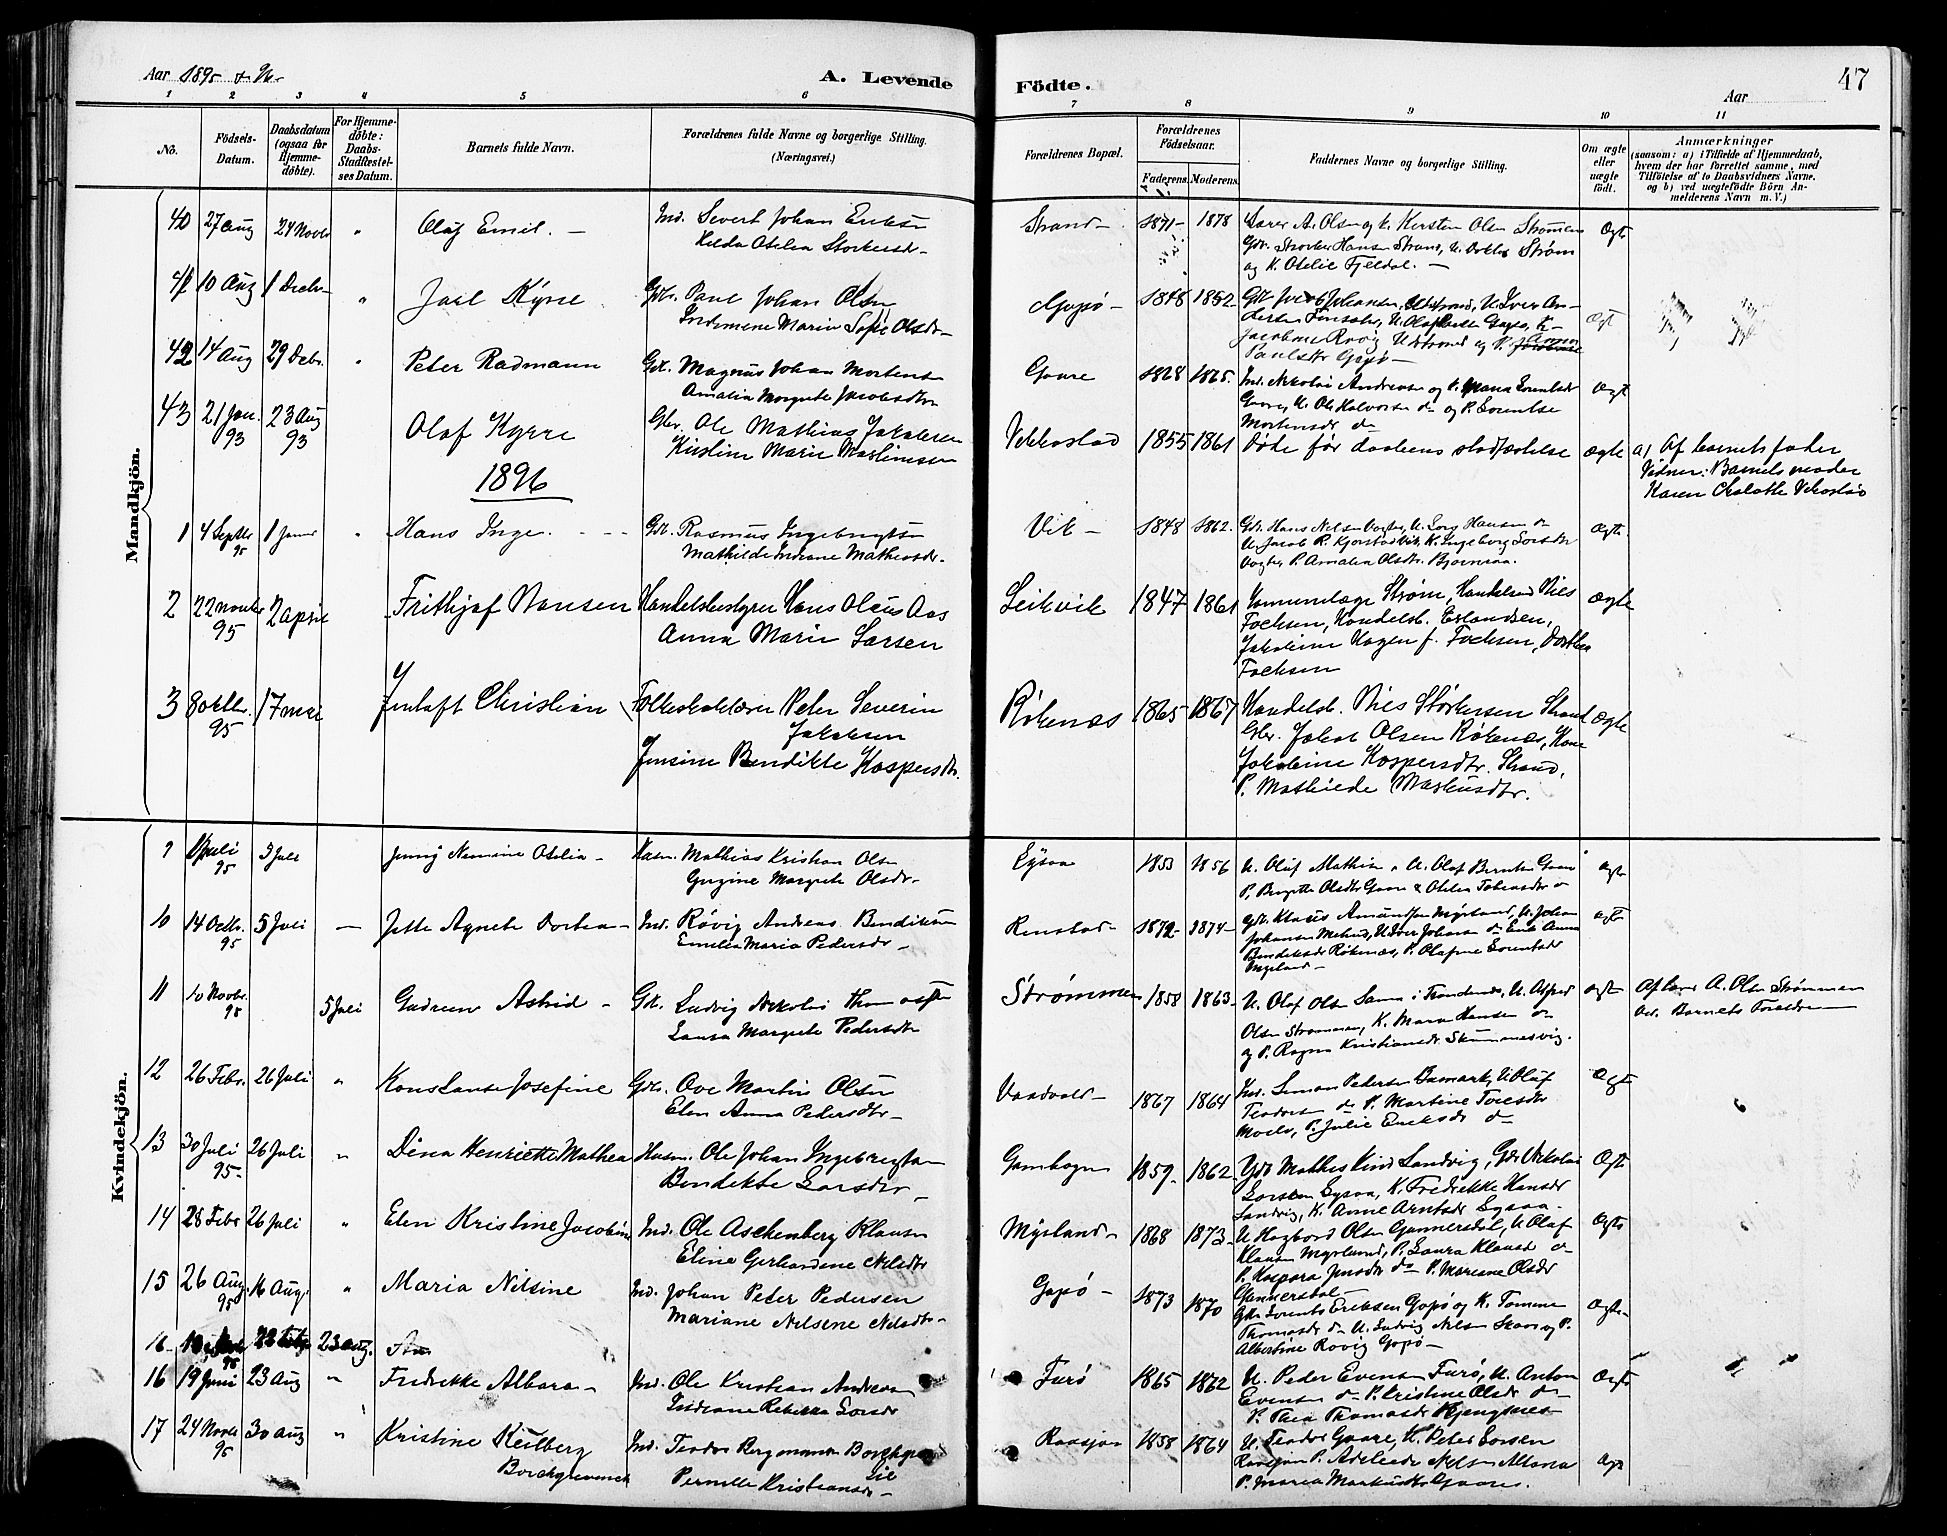 Aar 1895 & 96
A. Levende
Födte.
Aar
47
1 2 3 4 5 6 7 8 9 10 11
No.
Födsels-
Datum.
Daabsdatum
(ogsaa for
Hjemme-
döbte).
For Hjemme-
döbte:
Daabs-
Stadfæstel-
ses Datum.
Barnets fulde Navn.
Forældrenes fulde Navne og borgerlige Stilling.
(Næringsvei.)
Forældrenes Bopæl.
Forældrenes
Födselsaar.
Faderens. Moderens.
Faddernes Navne og borgerlige Stilling.
Om ægte
eller
uægte
födt.
Anmærkninger
(saasom: a) i Tilfælde af Hjemmedaab,
hvem der har forrettet samme, med
Tilföielse af to Daabsvidners Navne,
og b) ved uægtefödte Börn An-
melderens Navn m. V.)
Mandkjön.
40 27 Aug 24 Novbr " Oluf Emil. Ind. Severt Johan Eriksen
Hilda Otelia Storkersdr.
Strand 1871 1878 Lærer A. Olsen og K. Kersten Olsen Strømmen
Gdr. Storker Hansen Strand, U. Dorthea Strøm
og K. Otelie Fjeldal.
Ægte
41 10 Aug 1 Decbr " Joel Kyrre Gdr. Paul Johan Olsen
Indemene Marie Sofie Olsdr
Gapø 1848 1852 Gdr Jacob Johansen,
Paulsdr Gapø
Ægt
42 14 Aug 29 Debr. " Peter Radmann Gdr. Magnus Johan Mortensen
Amalia Margrete Jacobsdtr
Gaare 1828 1865. Ind. Nikolai Andreasen og P. Maria Lorentsdr
Gaare, U. Ole Halvorsen do og P. Lorentse
Mortensdr do
Ægt
43 21 Jan. 93 23 Aug 93 Olaf Kyrre Gbr. Ole Mathias Jakobsen
Kirstine Marie Martinussen
Vikkestad 1855 1861 Døde før daabens stadfæstelse ægte a) Af barnets fader
Vidner: Barnets moder
Karen Chalotte Vikestad
1896
1 4 Septbr 95 1 Januar " Hans Inge. Gdr. Rasmus Ingebrigtsen
Mathilde Indiane Mathiasdr.
Vik 1848 1862. Gdr. Hans Nilsen Vagtes, U. Lorg Hansen do
U. Jacob P. Kjorstad Vik, K. Ingeborg Larsdr
Vagtes, P. Amalia Olsdtr. Bjornraa.
Ægte
2 22 novbr 95 2 april Frithjof Nansen Handelsbestyrer Hans Olaus Aas
Anna Marie Larsen
Leikvik 1847 1861 Kommunelæge Strøm, Handelsmd Nils
Fochsen, Handelsb. Erlandsen,
Jakobine Hagen f. Fochsen, Dorthea
Fochsen
ægte
3 8 oktbr. 95 17 mai Jentoft Christian Folkeskolelærer Peter Severin
Jakobsen
Jensine Bendikte Kaspersdtr.
Røkenæs 1865 1867 Handelsb. Nils Størkersen Strand
Gbr. Jakob Olsen Røkenæs, Kone
Jakobine Kaspersdtr. Strand,
P. Mathilde Markusdtr.
Ægte
Kvindekjön.
9 1 Juli 95 5 Juli Jenny Nemine Otelia Husm. Mathias Kristian Olsen
Gurine Margrete Olsdr.
Lysaa 1853 1856 U. Oluf Mathisen, U. Olaf Berntsen Gaare
P. Birgitte Olsdtr Gaare & Otelia Tobiasdtr do
Ægt
10 14 Octbr. 95 5 Juli — Jette Agnete Dortea Ind. Røvig Andreas Bendiksen
Emilia Maria Pedersdr
Renstad 1872 1874 Gdr. Klaus Amundsen Myrland, U. Johan
Johansen
Bendiksdr Røkenæs, P. Olafine Lorentsdr
Myrland
Ægte
11 10 Novbr. 95 5 Juli Gudrun Astrid Gdr. Ludvig Nikolai Thomassen
Laura Margrete Pedersdtr
Strømmen 1858 1863 U. Olaf Olsen Sama i Trondenæs, U. Alfred
Olsen Strømmen, K. Mara Hansen do
og P. Ragna Kristiansdr. Skummesvig.
Ægt Af Lærer A. Olsen Strømmen
Vid. Barnets Forældre
12 26 Febr. 26 Juli " Konstanse Josefine Gdr. Ove Martin Olsen
Elen Anna Pedersdtr
Vaadvold 1867 1864 Ind. Simon Pedersen Bismark, U. Oluf
Teodorsen do P. Martine Toresdtr
Moelv, P. Julie Eriksdr do
Ægt
13 30 Juli 95 26 Juli " Dina Henriette Mathea Husm. Ole Johan Ingebrigtsen
Bendikte Larsdtr
Gambogen 1859 1862 Gdr Mathis Kind Sandvig, Gdr. Nikolai
Lorsen Lysaa, K. Fredrikke Hansdr
Sandvig, K. Anne Arntsdr Lysaa.
Ægt
14 28 Febr 26 Juli " Elen Kristine Jacobine Ind. Ole Aschenberg Klausen
Eline Gerhardine Nilsdtr
Myrland 1868 1873 U Hagbard Olsen Gunnersdal, U Olaf
Klausen Myrland, P. Laura Klausdr do
P. Kaspara Jensdr do P. Mariane Olsdr
Gunnersdal
Ægte
15 26 Aug 95 16 Aug. " Maria Nilsine Ind. Johan Peter Pedersen
Mariane Nilsine Nilsdtr
Gapø 1873 1870 Gdr. Lorents Eriksen Gapø og K. Tomine
Thomasdr do U. Ludvig Nilsen Skar og P.
Albertine Røvig Gapø
Ægte
16 23 aug.
16 19 Juni 95 23 Aug " Fredrikke Albara Ind. Ole Kristian Andreasen
Indiane Rebekka Larsdr
Furø 1865 1862 U. Peder Evensen Furø, U. Anton
Evensen do P. Kristine Olsdr do
P. Thea Thomasdr Kjengsnes
Ægte
17 24 Novbr 95 30 Aug " Kristine Keilberg
Borchgrevink
Ind. Teodor Bergmann Borchgrevink
Pernille Kristiansdr
Raasjøen 1858 1864 U. Teodor Gaare, U. Peter Larsen
Raasjøen P. Adelaide Nilsen Altona
P. Maria Markusdtr Gaare.
Ægt